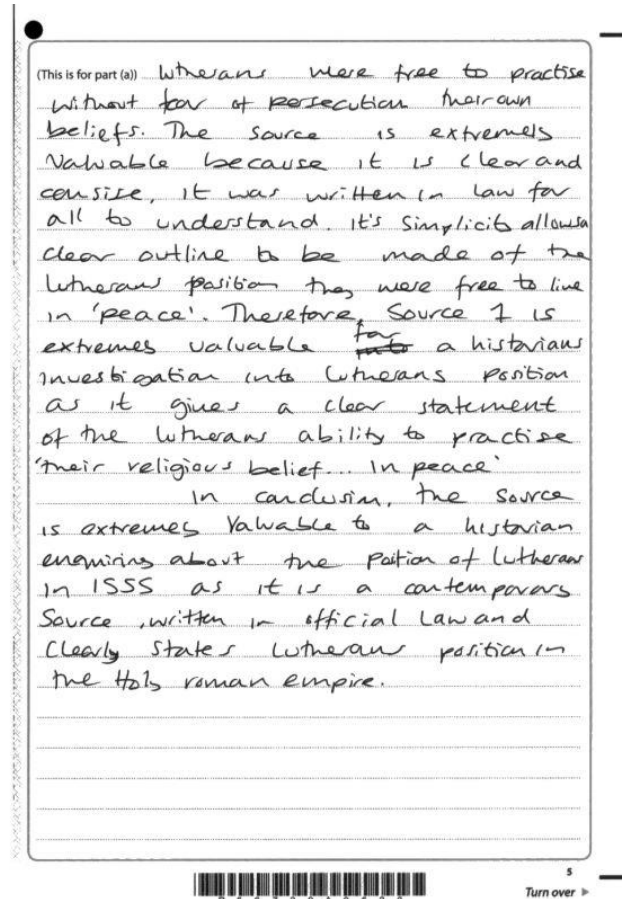 (This is for part (a)) Lutherans were free to practise
without fear of persecution their own
beliefs. The source is extremely
Valuable because it is clear and
consise, it was written in law for
all to understand. it's simplicity allows a
clear outline to be made of the
Lutherans position they were free to live
in 'peace'. Therefore, Source 1 is
extremely valuable for a historians
investigation into Lutherans position
as it gives a clear statement
of the Lutherans ability to practise
'their religious belief... in peace'
In conclusion, the source
is extremely valuable to a historian
enquiring about the poition of Lutherans
in 1555 as it is a contemporary
Source, written in official Law and
Clearly states Lutherans position in
the Holy roman empire.
5
Turn over